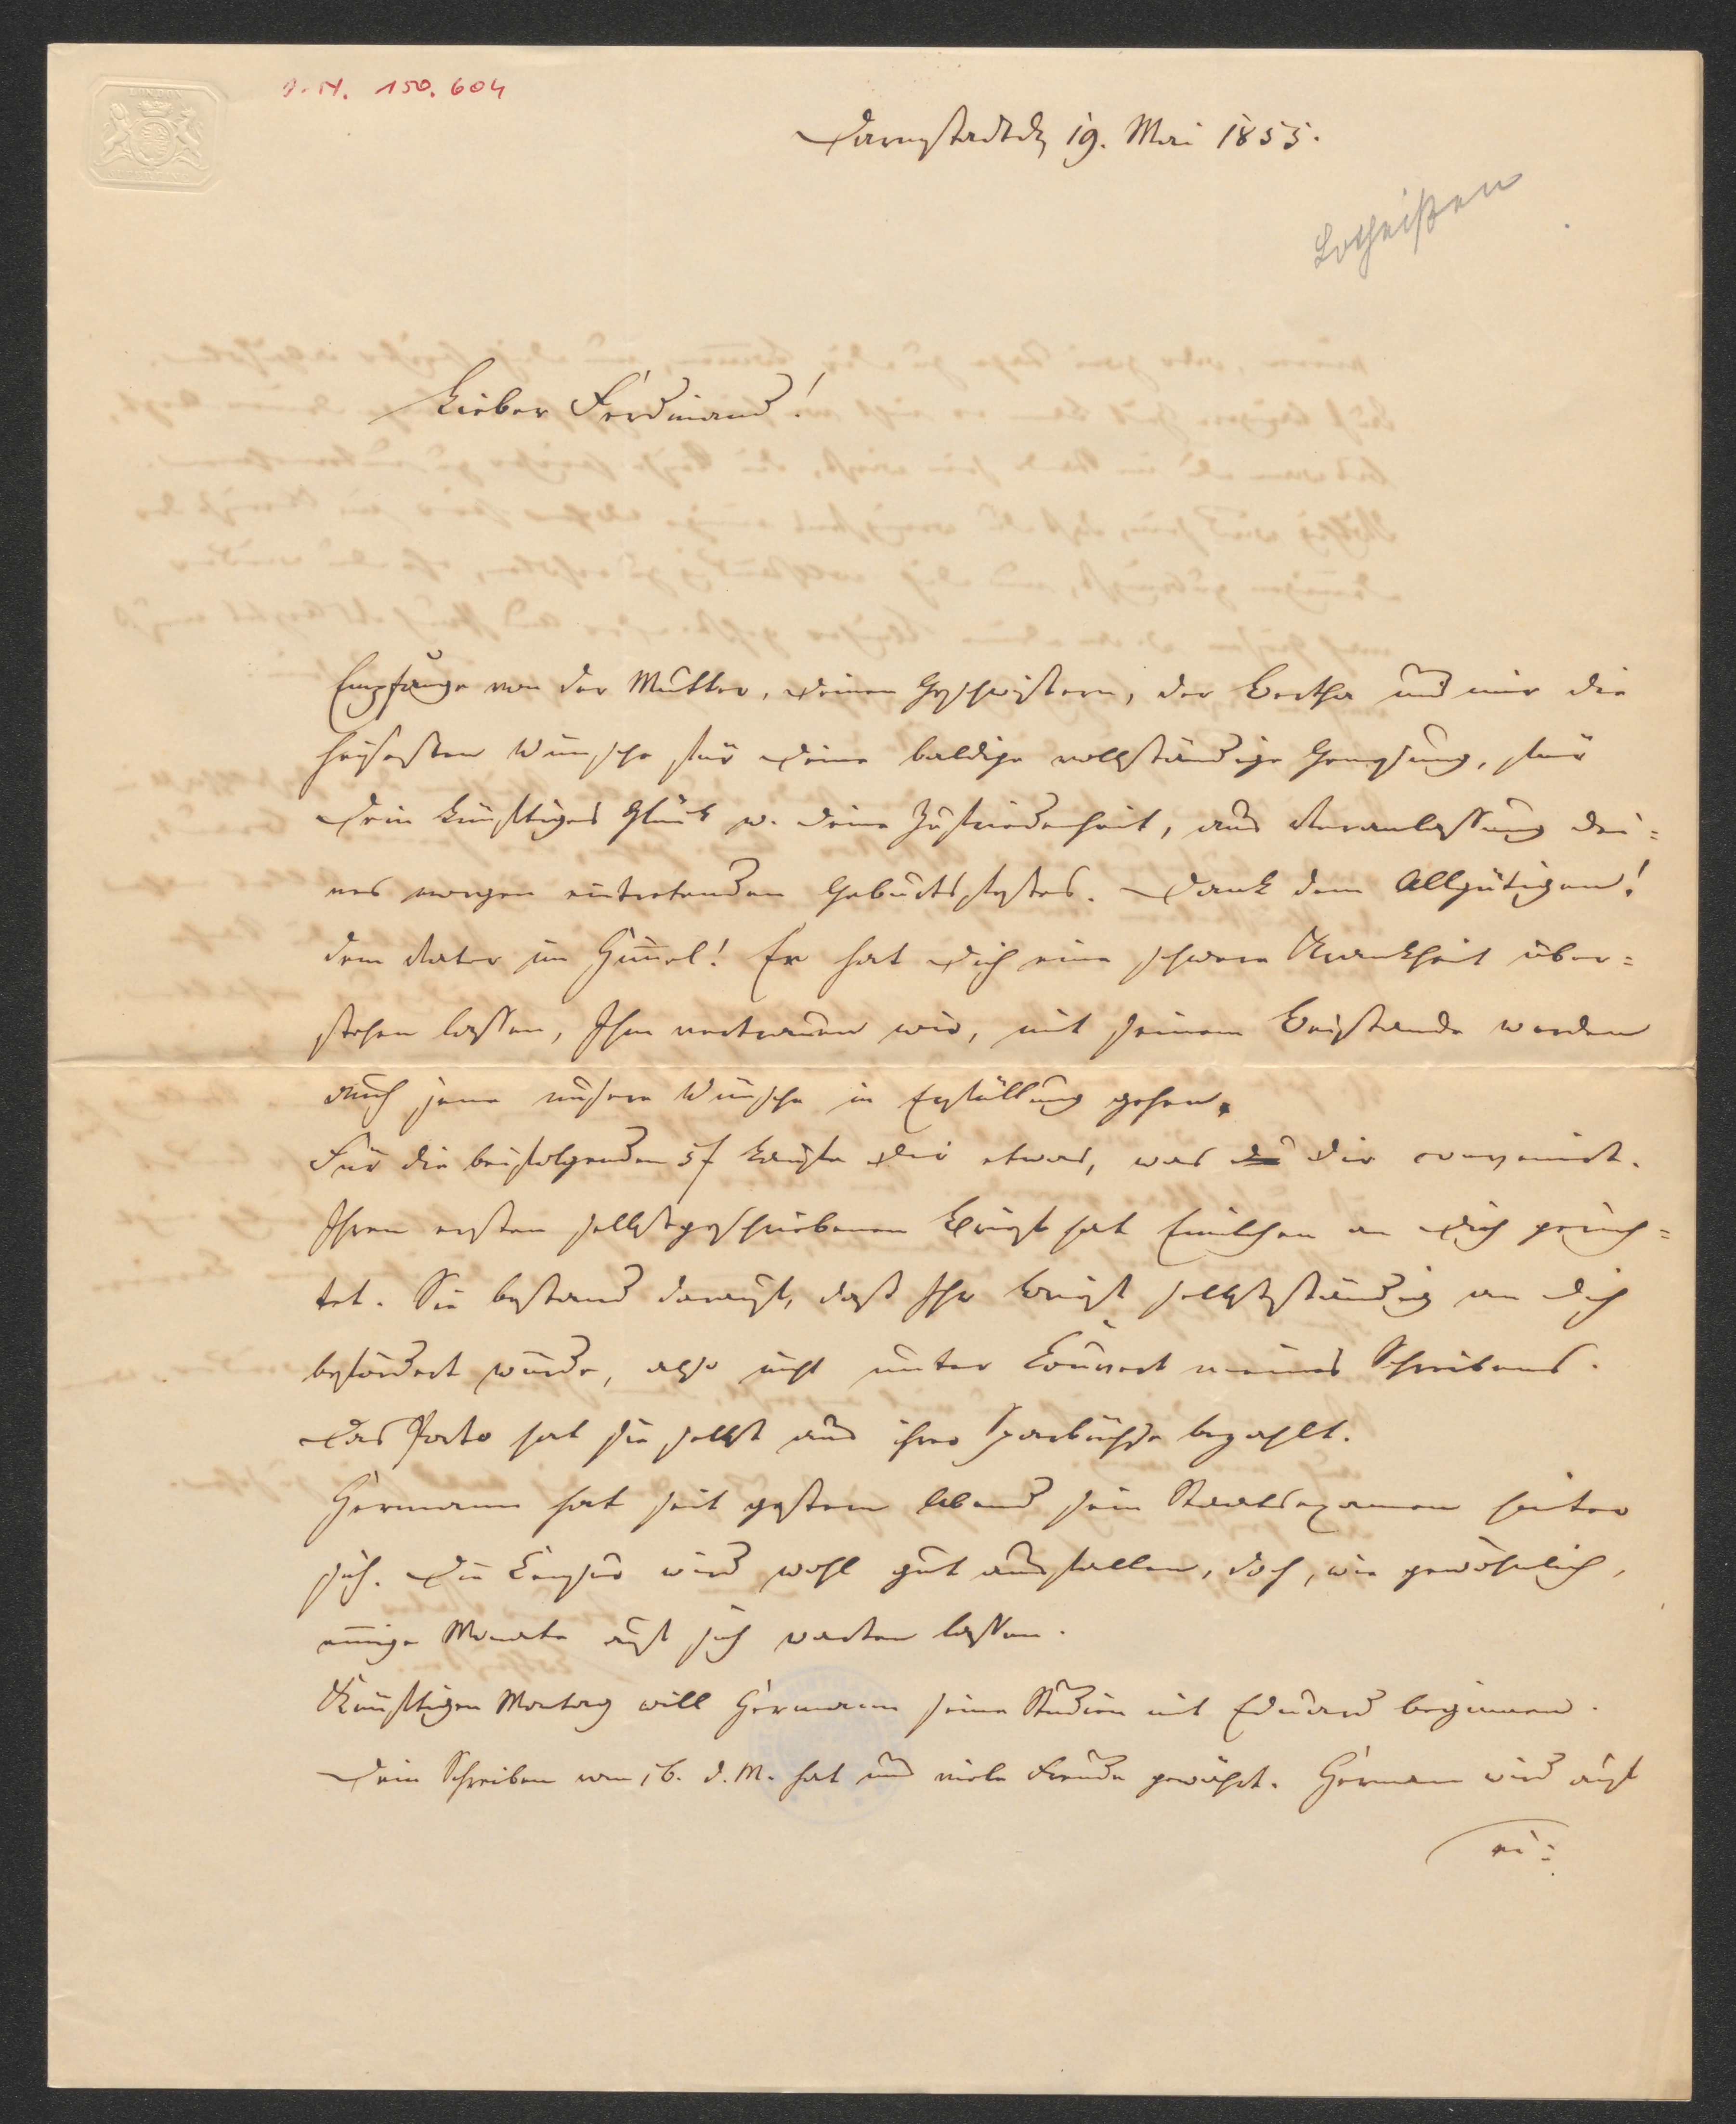 LONDON
I. N. 150.604
Darmstadt d. 19. Mai 1855.
Lotheißen
Lieber Ferdinand!
Empfange von der Mutter, deinen Geschwistern, der Bertha und mir die
heisesten Wünsche für deine baldige vollständige Genesung, für
dein künftiges Glück u. deine Zufriedenheit, aus Veranlassung dei=
nes morgen eintretenden Geburtsfestes. Dank dem Allgütigen!
dem Vater im Himel! Er hat dich eine schwere Krankheit über=
stehen lassen, Ihm vertrauen wir, mit seinem Beistande werden
auch jene unsere Wünsche in Erfüllung gehen.
Für die beifolgenden 5 f kaufe dir etwas, was dir convenirt.
Ihren ersten selbstgeschriebenen Brief hat Emilchen an dich gerich=
tet. Sie bestand darauf, daß Ihr Brief selbstständig an dich
befördert würde, also nicht unter Couvert meines Schreibens.
Das Porto hat sie selbst aus ihrer Sparbüchse bezahlt.
Hermann hat seit gestern Abend sein Staatsexamen hinter
sich. Die Censur wird wohl gut ausfallen, doch, wie gewöhnlich,
einige Monate auf sich warten lassen.
Künftigen Montag will Hermann seine Studien mit Eduard beginnen.
Dein Schreiben vom 16. d. M. hat uns viele Freude gewährt. Hermann wird auf
ei=